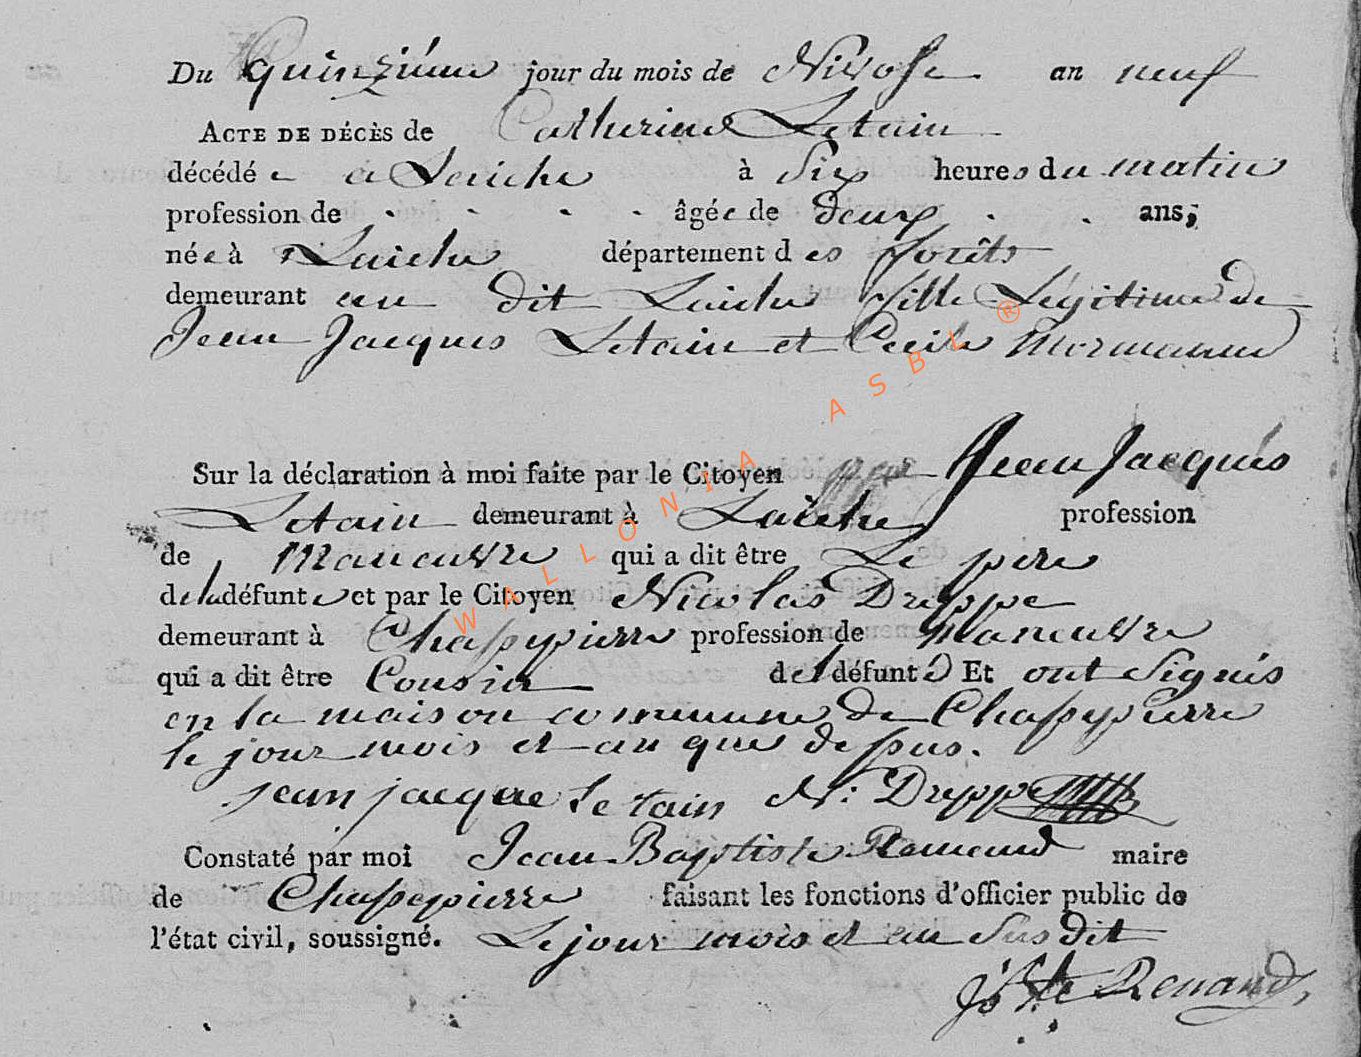 Du quinzième jour du mois de Nivose an neuf
ACTE DE DÉCÈS de Catherine Letain
décédée a Laiche à Six heures du matin
profession de . . . . âgée de deux . . ans,
née à Laiche département des forêts
demeurant au dit Laiche fille Légitime de
Jean Jacques Letain et Cecile Mormanne
Sur la déclaration à moi faite par le Citoyen par Jean Jacques
Letain demeurant à Laiche profession
de Maneuvre qui a dit être Le pere
de la défunte et par le Citoyen Nicolas Dreppe
demeurant à Chassepierre profession de Maneuvre
qui a dit être Cousin de l défunte Et ont Signés
en la maison commune de Chassepierre
le jour mois et an que dessus.
jean jacque letain N: Drepp
Constaté par moi Jean Baptiste Renaud maire
de Chassepierre faisant les fonctions d'officier public de
l'état civil, soussigné. Le jour mois et an Susdit
J Bte Renaud
WALLONIA ASBL ®